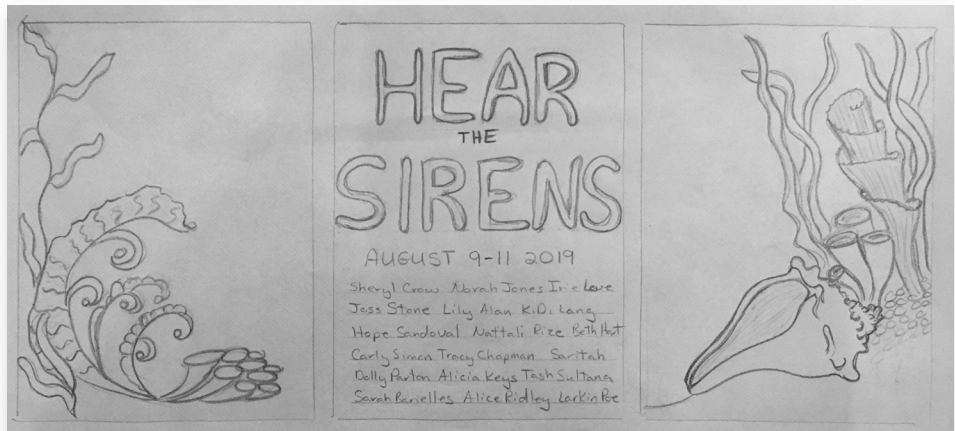 HEAR
THE
SIRENS
AUGUST 9-11 2019
Sheryl Crow Norah Jones Irie Love
Joss Stone Lily Alan K.D. Lang
Hope Sandoval Nattali Rize Beth Hart
Carly Simon Tracy Chapman Saritah
Dolly Parton Alicia Keys Tash Sultana
Sarah Barielles Alice Ridley Larkin Poe